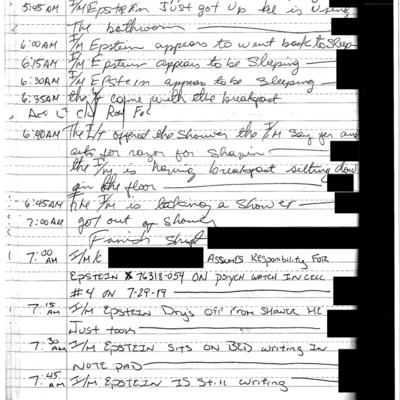 5:45AM I/M EPSTEIN Just got up he is using
The bathroom
6:00AM I/M Epstein appears to went back to sleep
6:15AM I/M Epstein appears to be sleeping
6:30AM I/M Epstein appears to be sleeping
6:35AM the I/T came with the breakfast
6:40AM The I/T offered the shower the I/M say yes and
ask for razor for shavin
the I/M is having breakfast sitting down
in the floor
6:45AM The I/M is taking a shower
7:00AM got out of shower
Finish shift
7:00 AM I/M K ASSUMES RESPONSIBILITY FOR
EPSTEIN 76318-054 ON PSYCH WATCH IN CELL
#4 ON 7-29-19
7:15 AM I/M EPSTEIN DRYS OFF FROM SHOWER HE
JUST TOOK
7:30 AM I/M EPSTEIN SITS ON BED WRITING IN
NOTE PAD
7:45 AM I/M EPSTEIN IS STILL WRITING